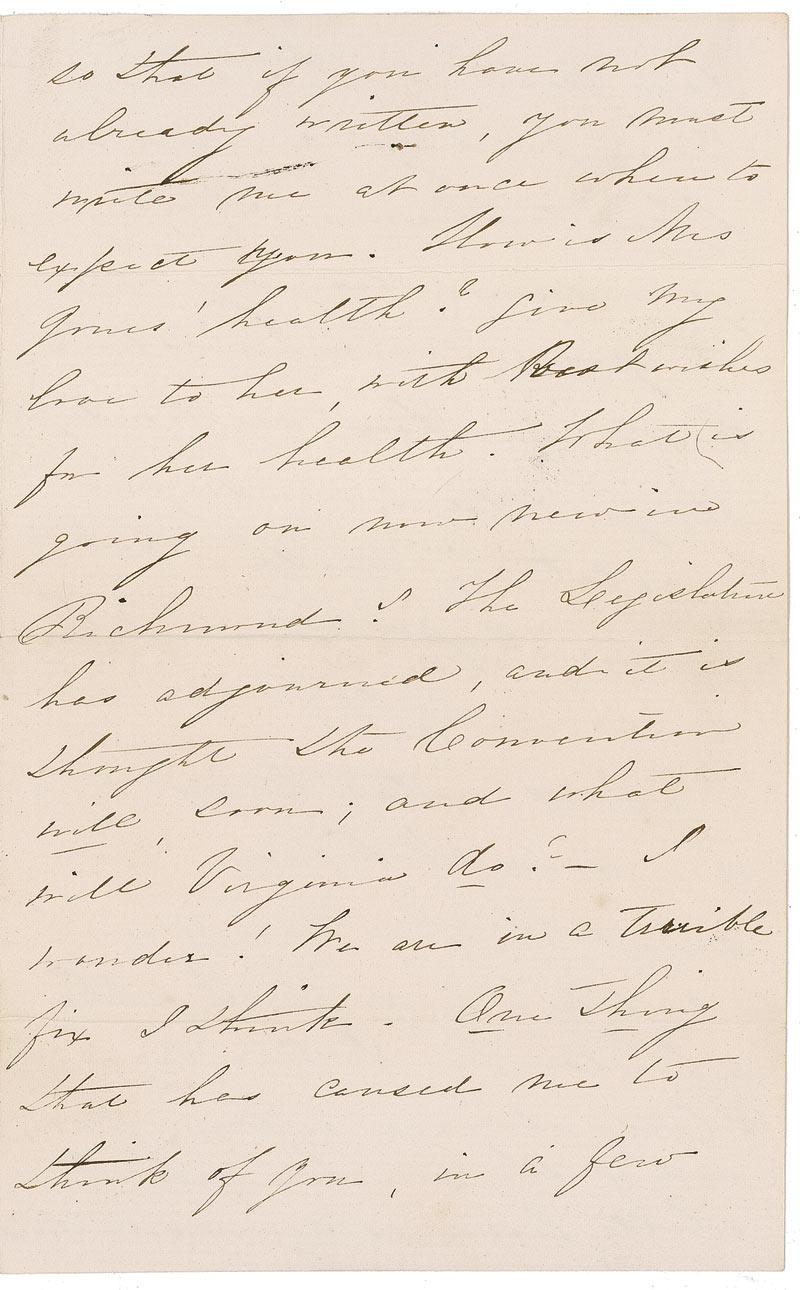 so that if you have not
already written, you must
write me at once when to
expect you. How is Mrs
Jones' health? Give my
love to her, with best wishes
for her health. What is
going on now new in
Richmond? The Legislature
has adjourned, and it is
thought the Convention
will, soon; and what
will Virginia do? — I
wonder! We are in a terrible
fix I think. One thing
that has caused me to
think of you, in a few